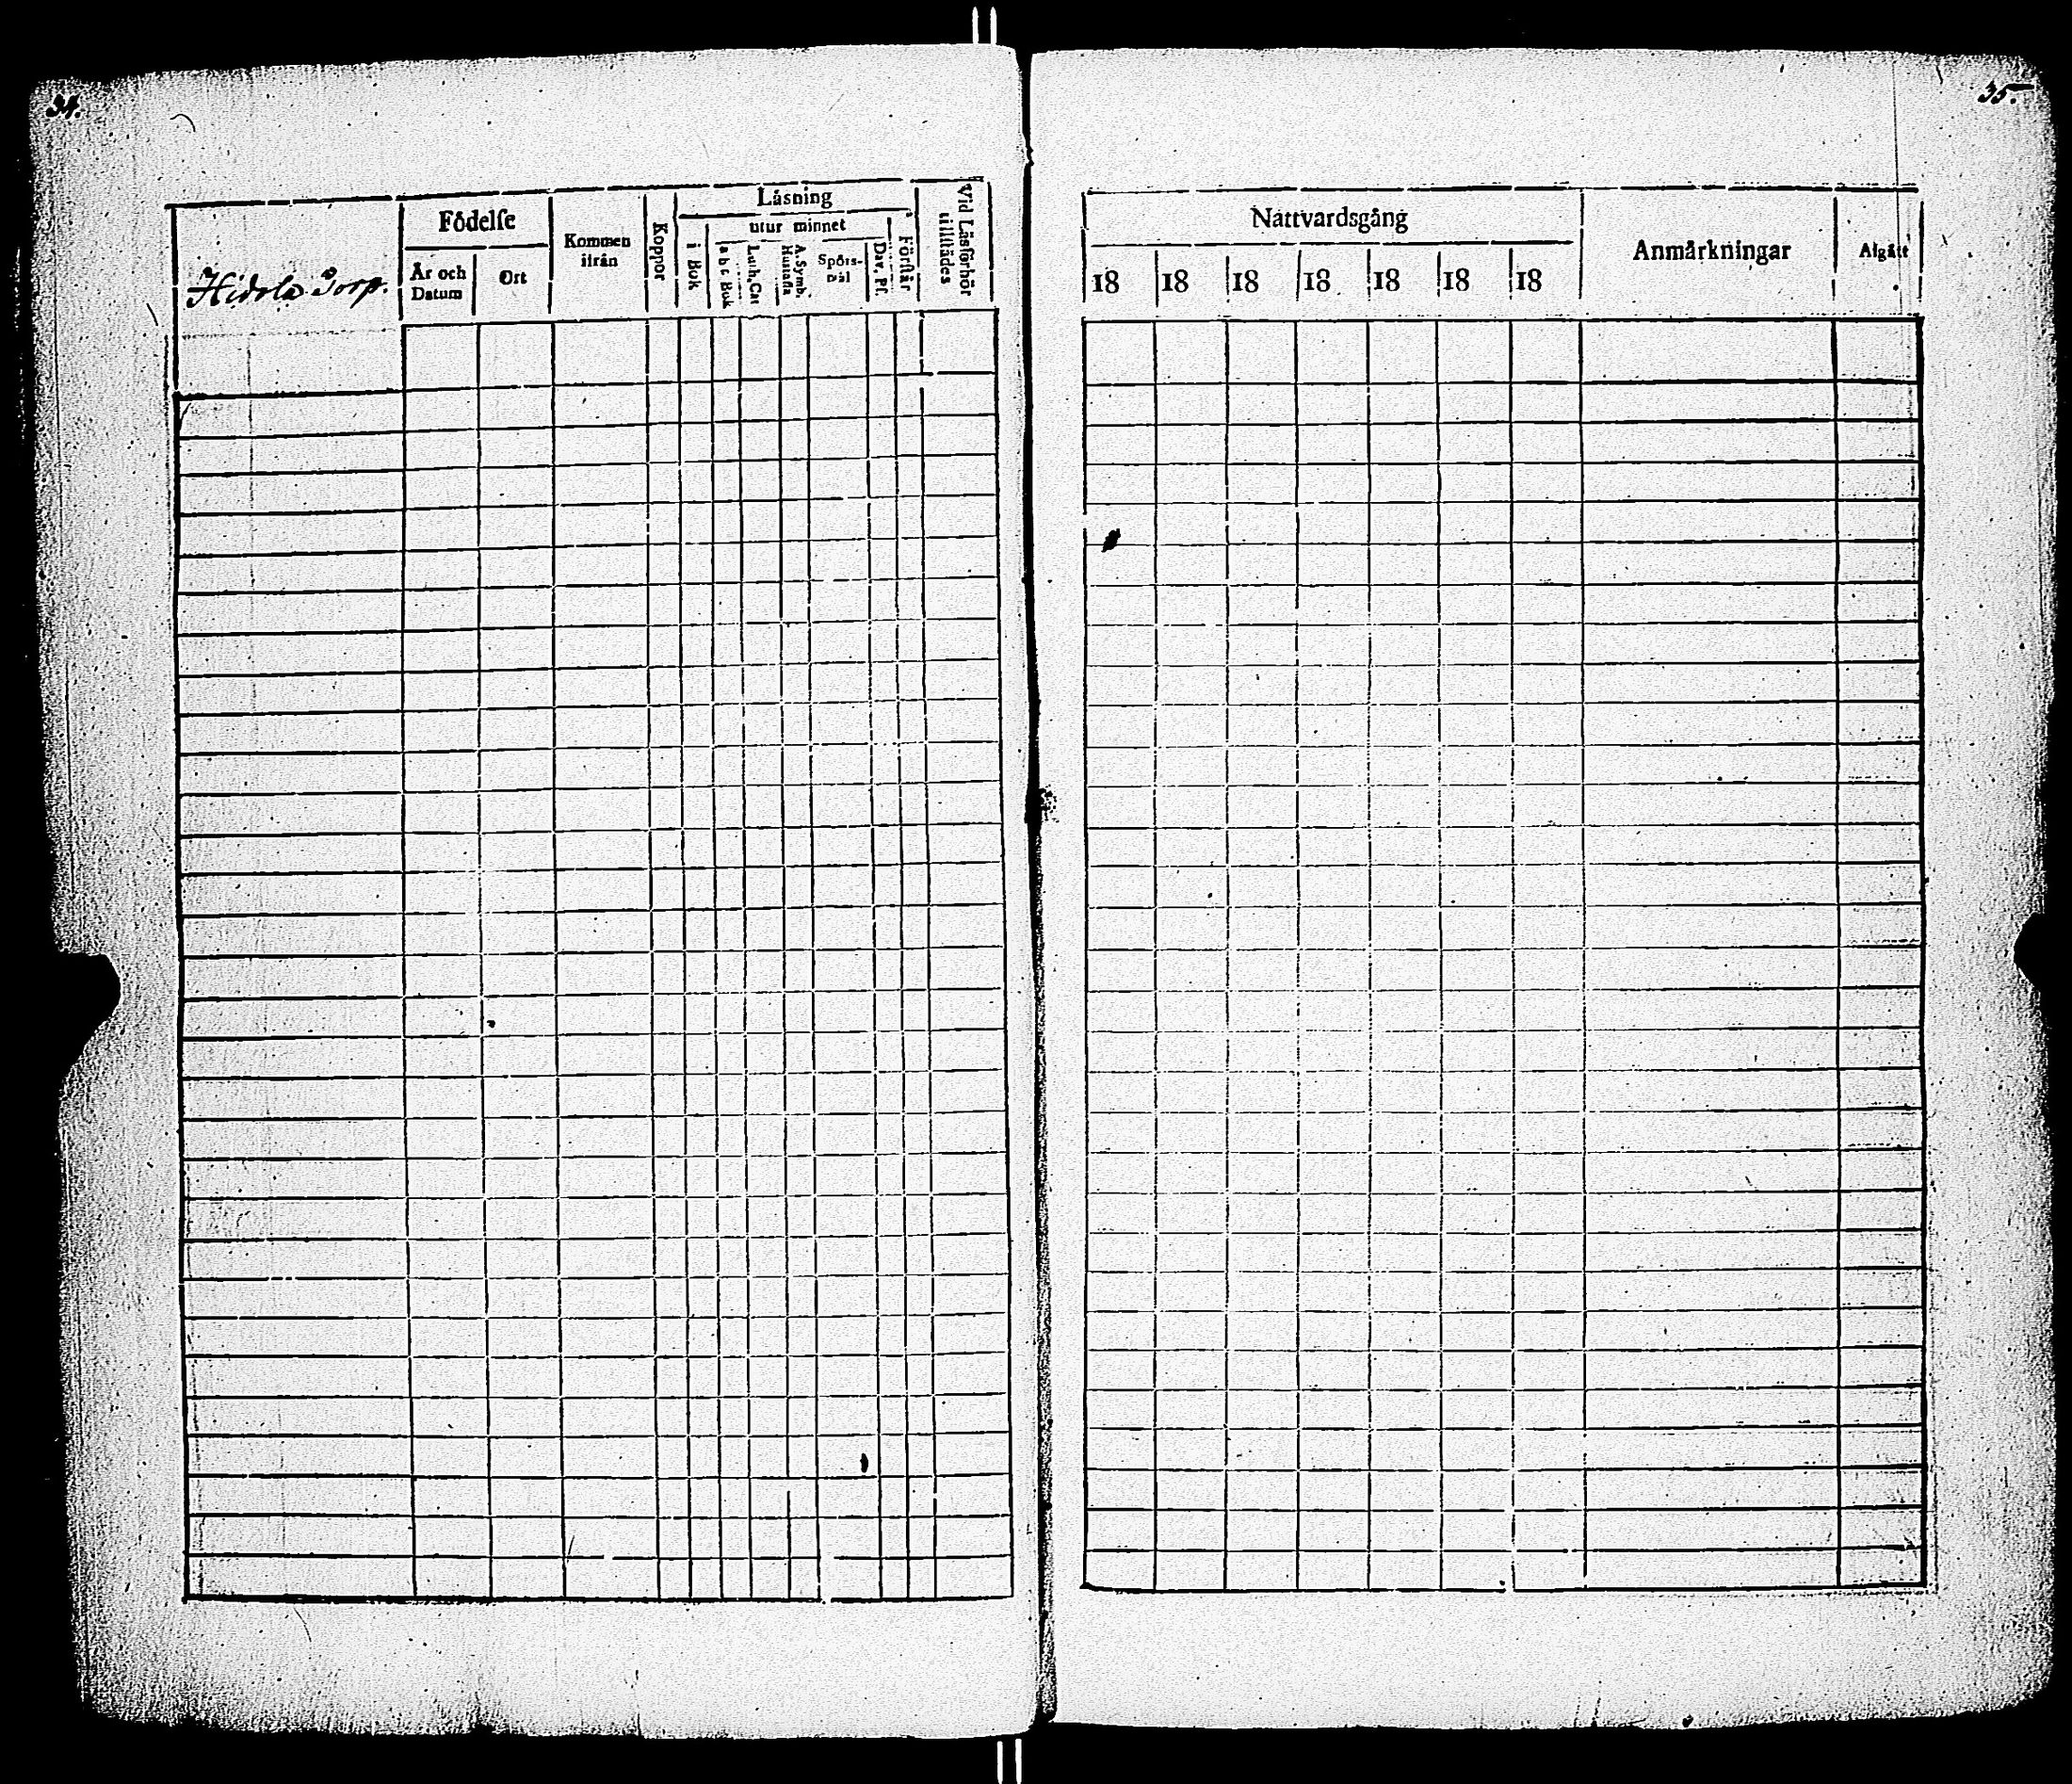 34.
Hidola Torp.
Födelſe
År och
Datum
Ort
Kommen
ifrån
Koppor
Läsning
i Bok
utur minnet
a b c Bok
Luth. Cat
A. Symb.
Hustafla
Spörs-
mål
Dav. Pſ.
Förſtår
Vid Läsförhör
tillſtädes
35.
Nattvardsgång
18 18 18 18 18 18 18
Anmärkningar
Afgått